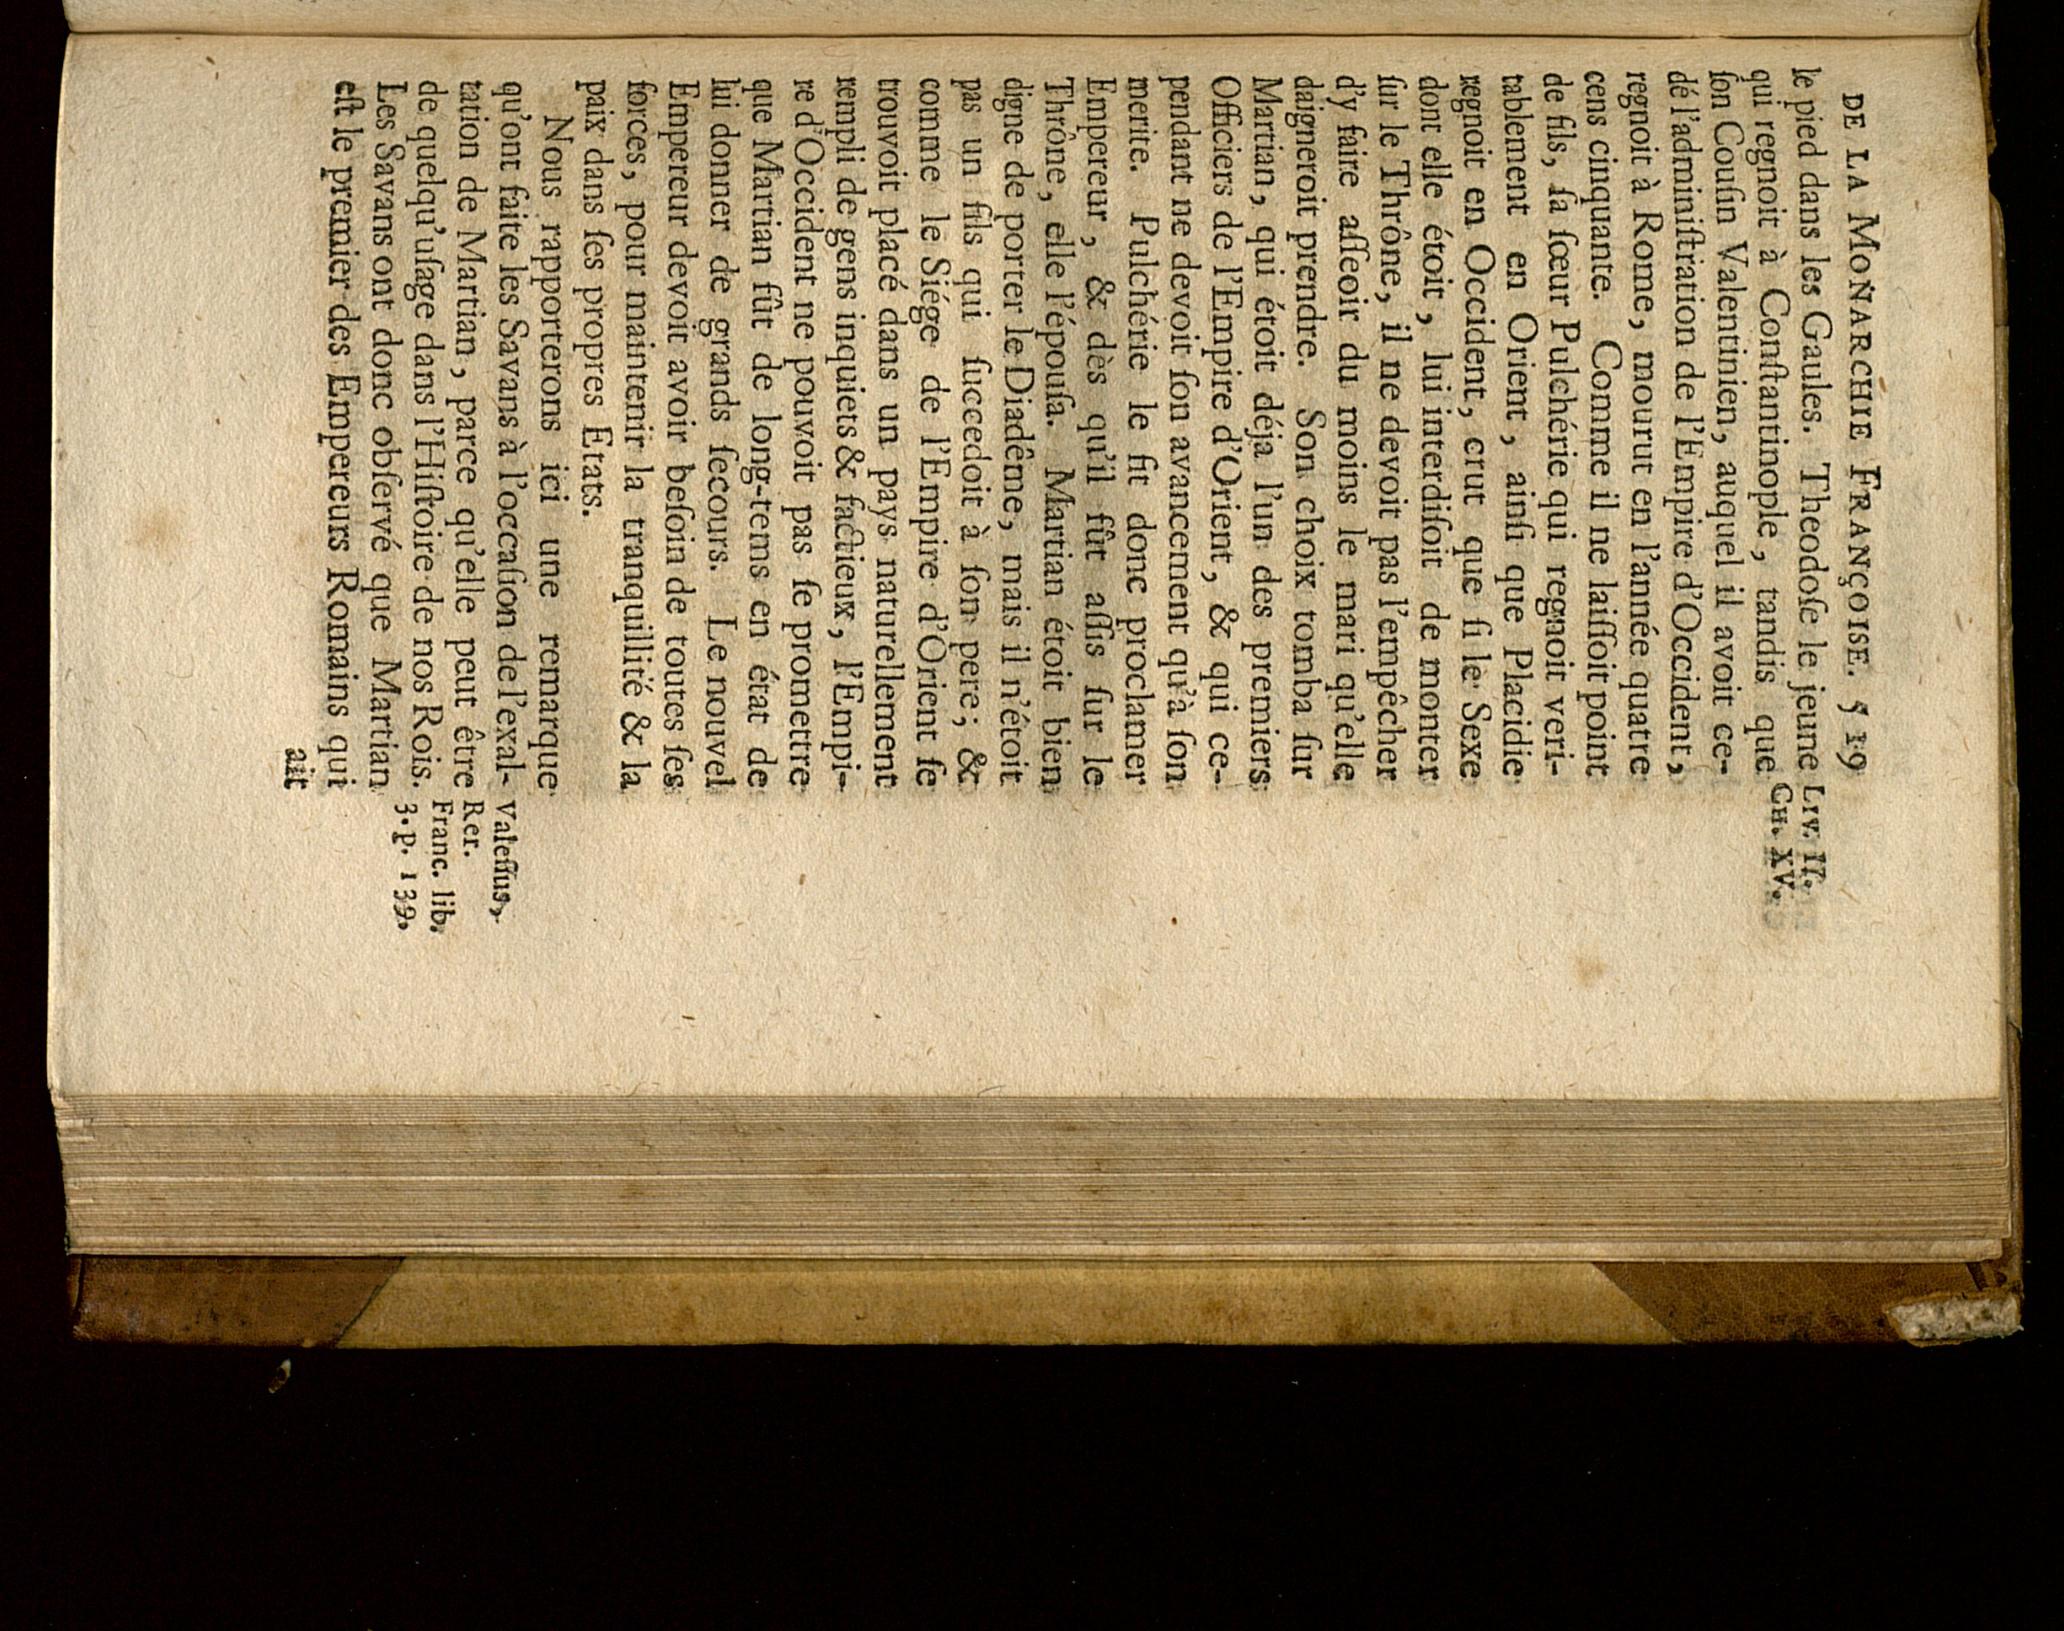 DE LA MONARCHIE FRANÇOISE. 519
le pied dans les Gaules. Theodoſe le jeune
qui regnoit à Conſtantinople, tandis que
ſon Couſin Valentinien, auquel il avoit ce-
dé l'adminiſtration de l'Empire d'Occident,
regnoit à Rome, mourut en l'année quatre
cens cinquante. Comme il ne laiſſoit point
de fils, ſa ſœur Pulchérie qui regnoit veri-
tablement en Orient, ainſi que Placidie
regnoit en Occident, crut que ſi le Sexe
dont elle étoit, lui interdiſoit de monter
ſur le Thrône, il ne devoit pas l'empêcher
d'y faire aſſeoir du moins le mari qu'elle
daigneroit prendre. Son choix tomba ſur
Martian, qui étoit déja l'un des premiers
Officiers de l'Empire d'Orient, & qui ce-
pendant ne devoit ſon avancement qu'à ſon
merite. Pulchérie le fit donc proclamer
Empereur, & dès qu'il fût aſſis ſur le
Thrône, elle l'épouſa. Martian étoit bien
digne de porter le Diadême, mais il n'étoit
pas un fils qui ſuccedoit à ſon pere; &
comme le Siége de l'Empire d'Orient ſe
trouvoit placé dans un pays naturellement
rempli de gens inquiets & factieux, l'Empi-
re d'Occident ne pouvoit pas ſe promettre
que Martian fût de long-tems en état de
lui donner de grands ſecours. Le nouvel
Empereur devoit avoir beſoin de toutes ſes
forces, pour maintenir la tranquillité & la
paix dans ſes propres Etats.
Nous rapporterons ici une remarque
qu'ont faite les Savans à l'occaſion de l'exal-
tation de Martian, parce qu'elle peut être
de quelqu'uſage dans l'Hiſtoire de nos Rois.
Les Savans ont donc obſervé que Martian
eſt le premier des Empereurs Romains qui
ait
LIV. II.
CH. XV.
Valeſius,
Rer.
Franc. lib.
3. p. 139.